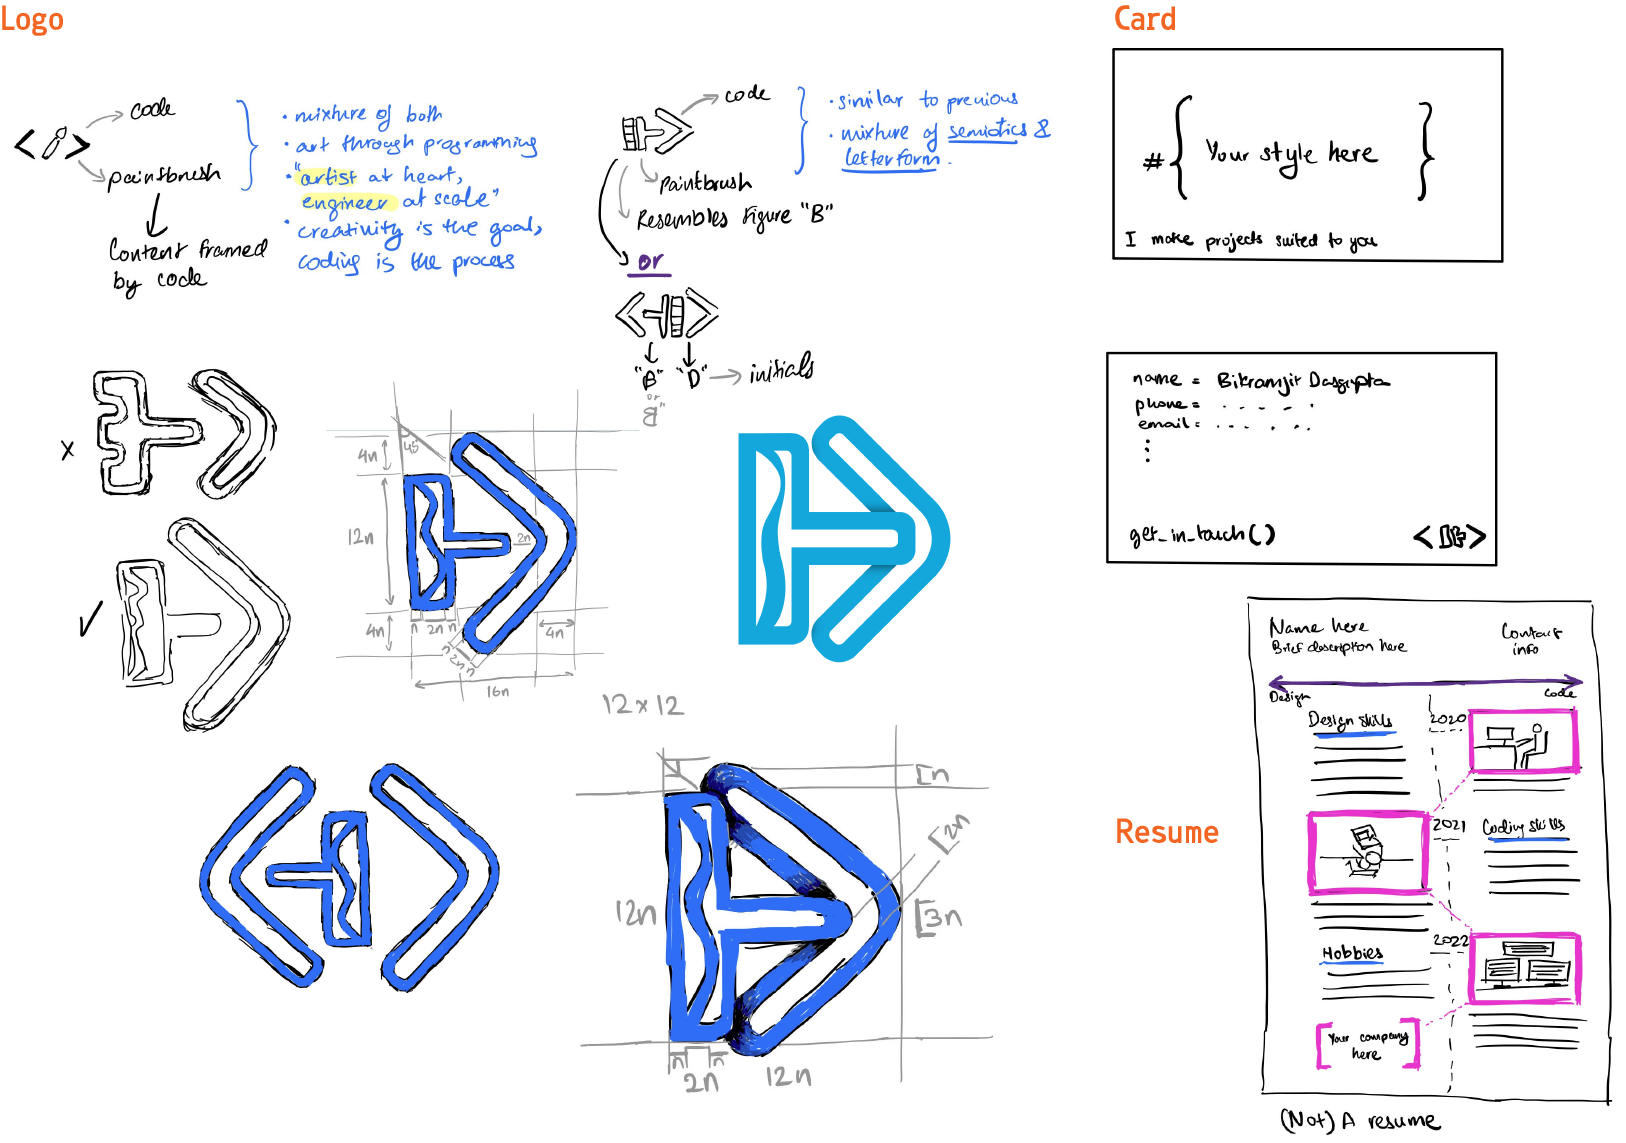 Logo
code
paintbrush
Content framed
by code
• mixture of both
• art through programming
• "artist at heart,
engineer at scale"
• creativity is the goal,
coding is the process
code
paintbrush
Resembles Figure "B"
or
"B" "D" → initials
or
"B"
• similar to previous
• mixture of semiotics &
letterform.
x
45
4n
12n
2n
4n
n 2n n
n 2n n
4n
16n
12 x 12
[n
[2n
12n
[3n
n n
2n
12n
Card
# { Your style here }
I make projects suited to you
name = Bikramjit Dasgupta
phone = . . . . .
email = . . . . . .
get_in_touch()
Resume
Name here
Brief description here
Contact
info
Design
code
Design skills
2020
2021
Coding skills
Hobbies
2022
[Your company
here]
(Not) A resume